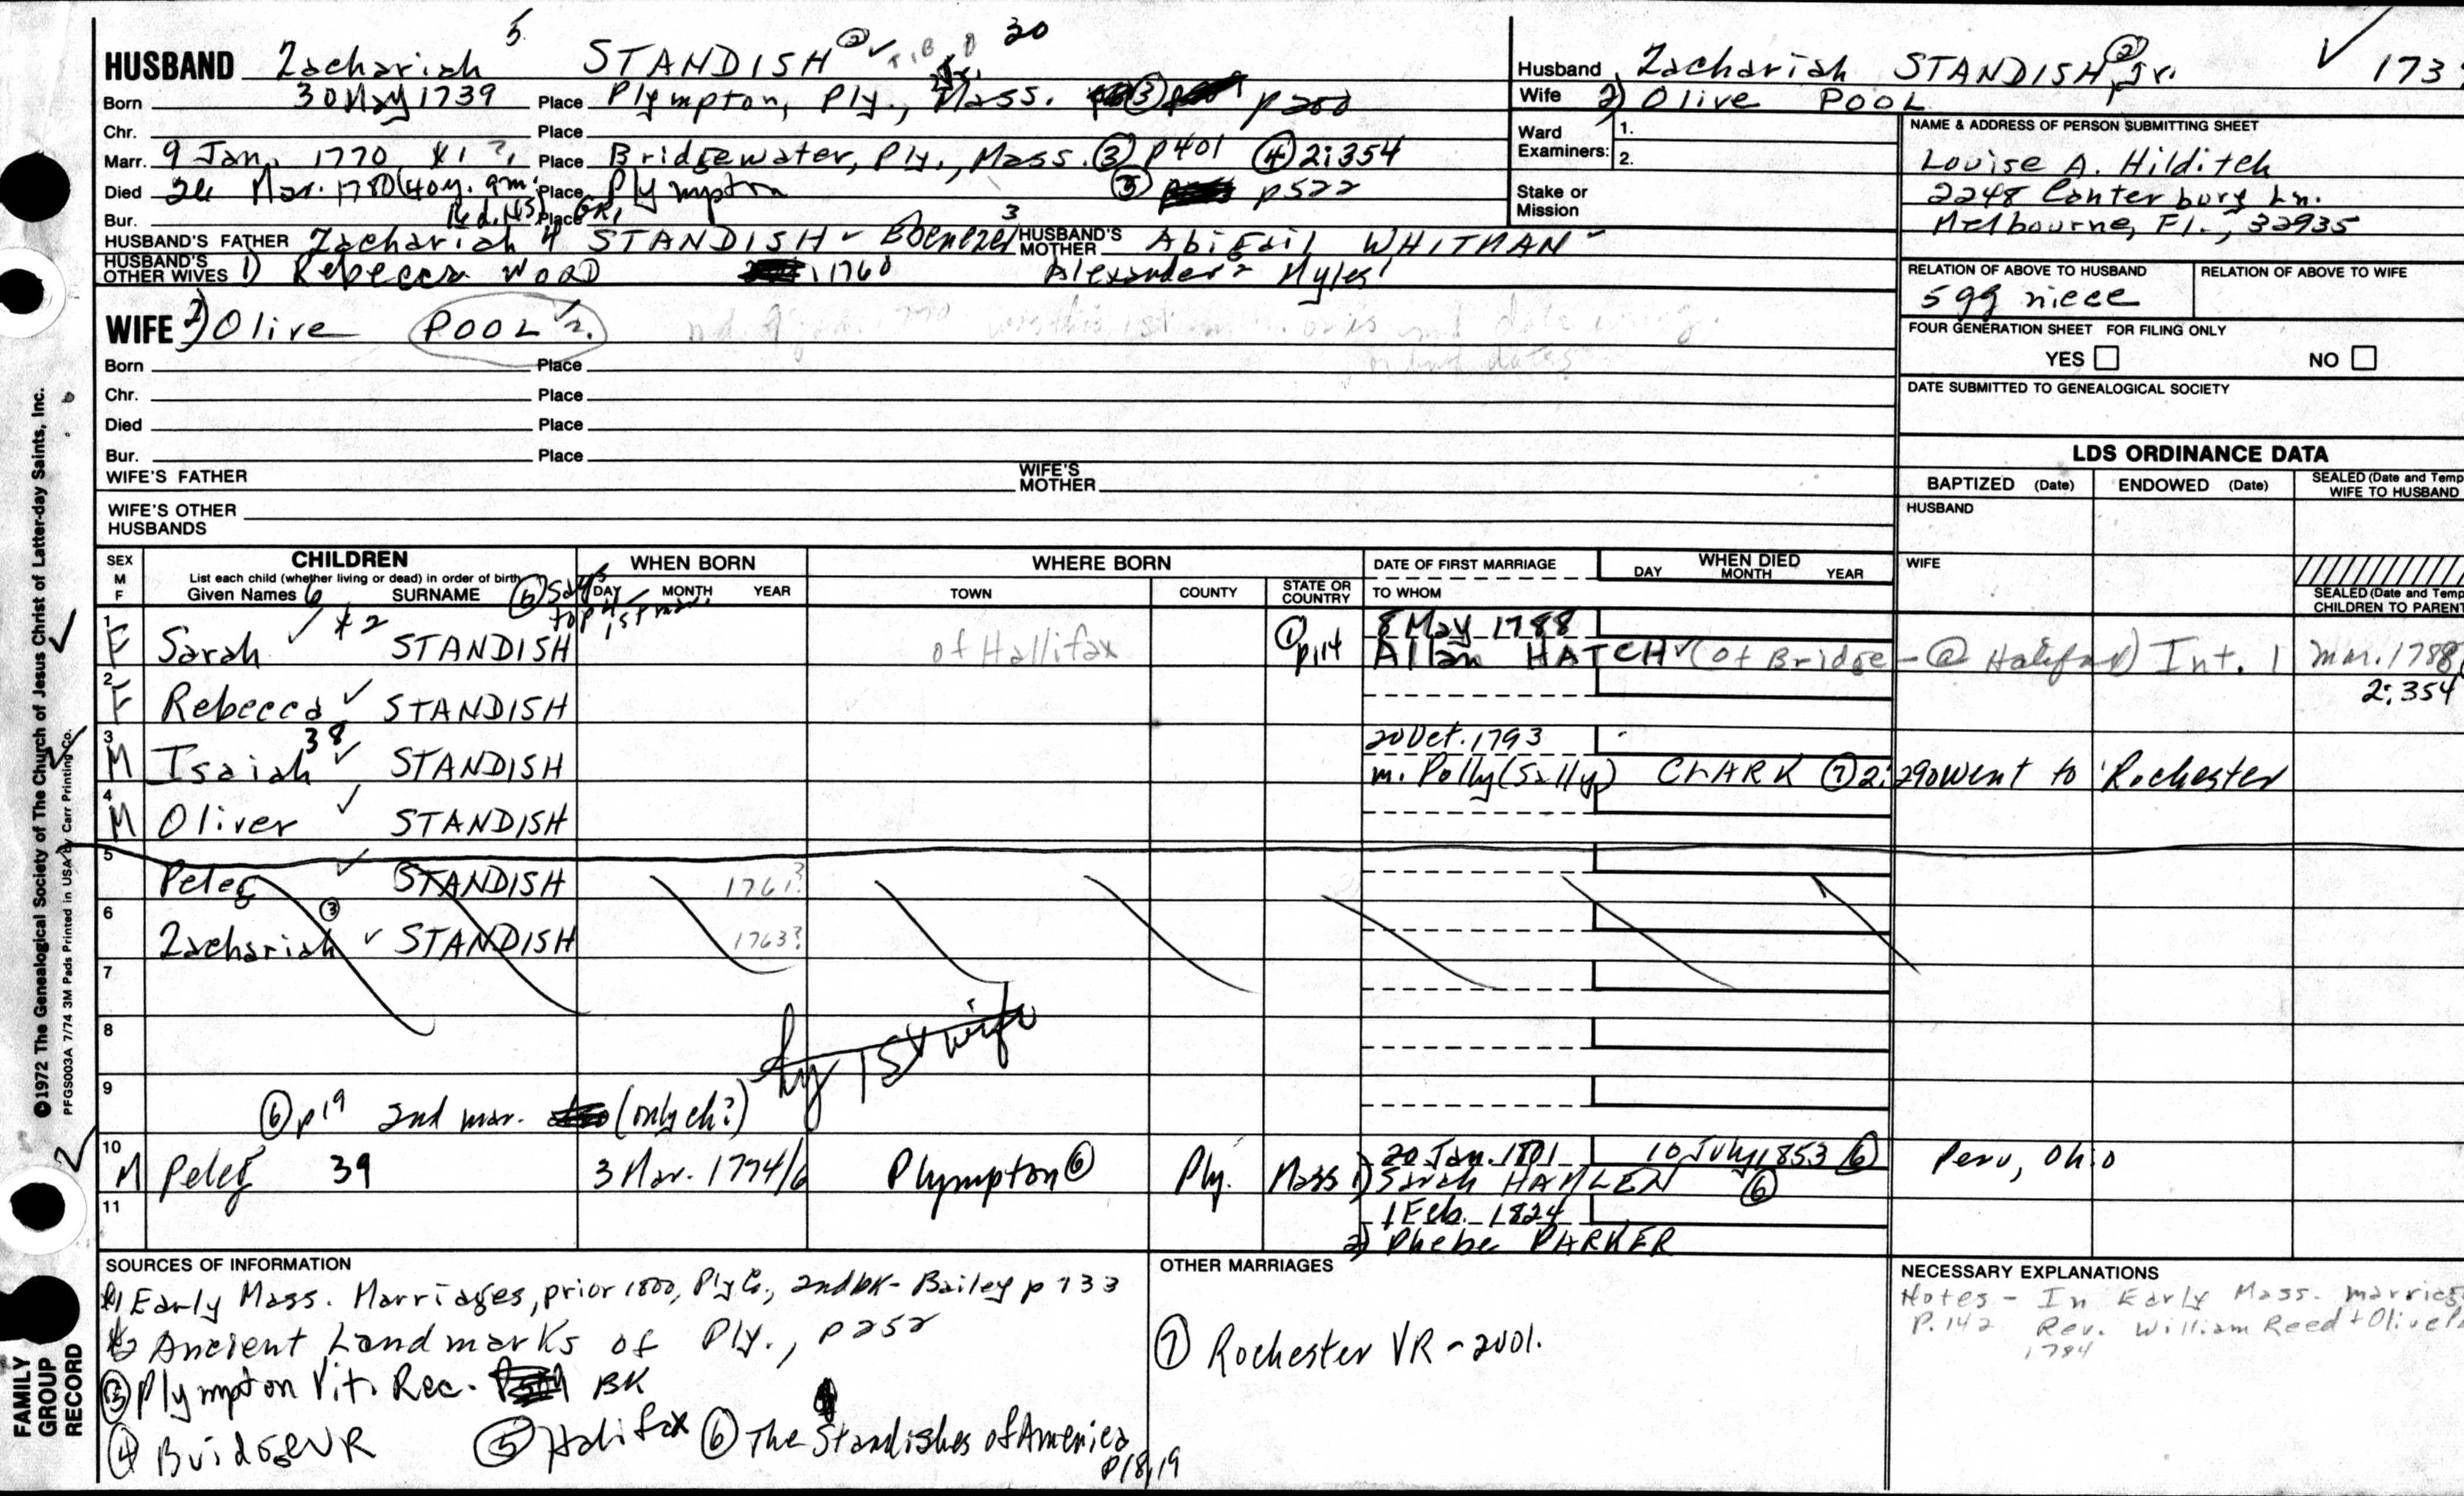 HUSBAND Zachariah 5 STANDISH ② ✓ T.B.D 30
Born 30 May 1739 Place Plympton, Ply., Mass. ③ p 200
Chr. Place
Marr. 9 Jan. 1770 *1 ?, Place Bridgewater, Ply., Mass. ③ p401 ④ 2:354
Died 24 Mar. 1780 (40y. 9m. Place Plympton ③ p522
Bur. Place GR1
HUSBAND'S FATHER Zachariah 4 STANDISH - Ebenezer 3 HUSBAND'S MOTHER Abigail WHITMAN
HUSBAND'S OTHER WIVES 1) Rebecca WOOD 1760 Alexander 2 Myles 1
WIFE 2) Olive POOL
Born Place
Chr. Place
Died Place
Bur. Place
WIFE'S FATHER WIFE'S MOTHER
WIFE'S OTHER HUSBANDS
Husband Zachariah STANDISH, Jr. ② ✓ 173
Wife 2) Olive POOL
Ward Examiners: 1.
2.
Stake or Mission
NAME & ADDRESS OF PERSON SUBMITTING SHEET
Louise A. Hilditch
2248 Canterbury Ln.
Melbourne, Fl., 32935
RELATION OF ABOVE TO HUSBAND RELATION OF ABOVE TO WIFE
5 gg niece
FOUR GENERATION SHEET FOR FILING ONLY
YES NO
DATE SUBMITTED TO GENEALOGICAL SOCIETY
LDS ORDINANCE DATA
BAPTIZED (Date) ENDOWED (Date) SEALED (Date and Temp
WIFE TO HUSBAND
HUSBAND
WIFE
SEALED (Date and Temp
CHILDREN TO PARENT
SEX M F CHILDREN WHEN BORN WHERE BORN DATE OF FIRST MARRIAGE WHEN DIED
List each child (whether living or dead) in order of birth
Given Names 6 SURNAME DAY MONTH YEAR TOWN COUNTY STATE OR COUNTRY TO WHOM DAY MONTH YEAR
⑥ says top 4 1st mar.
1 F Sarah ✓ *2 STANDISH of Hallifax ① p114 8 May 1788
Allan HATCH ✓ (of Bridge - @ Halifax) Int. 1 Mar. 1788
2:354
2 F Rebecca ✓ STANDISH
3 M Isaiah 38 ✓ STANDISH 20 Oct. 1793
m. Polly (Sally) CLARK ⑦ 2:290 went to Rochester
4 M Oliver ✓ STANDISH
5 Peleg ✓ STANDISH 1761?
6 Zachariah ③ ✓ STANDISH 1763?
7
8 by 1st wife
9 ⑥ p19 2nd mar. (only ch?)
10 M Peleg 39 3 Mar. 1774/6 Plympton ⑥ Ply. Mass 1) 20 Jan. 1801 10 July 1853 ⑥ Peru, Ohio
Sarah HAMLEN ⑥
11 1 Feb. 1824
2) Phebe PARKER
SOURCES OF INFORMATION
*1 Early Mass. Marriages, prior 1800, Ply Co., 2nd bk - Bailey p 133
*2 Ancient Landmarks of Ply., p252
③ Plympton Vit. Rec. BK
④ Bridge VR ⑤ Halifax ⑥ The Standishes of America
p18,19
OTHER MARRIAGES
⑦ Rochester VR - 2vol.
NECESSARY EXPLANATIONS
Notes - In Early Mass. marriag
P. 142 Rev. William Reed + Olive
1784
©1972 The Genealogical Society of The Church of Jesus Christ of Latter-day Saints, Inc.
PFGS003A 7/74 3M Pads Printed in USA by Carr Printing Co.
FAMILY
GROUP
RECORD